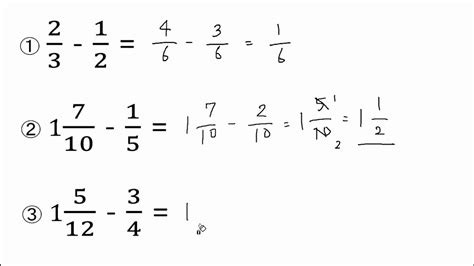 ① 2/3 - 1/2 = 4/6 - 3/6 = 1/6
② 1 7/10 - 1/5 = 1 7/10 - 2/10 = 1 5/10 1 2 = 1 1/2
③ 1 5/12 - 3/4 = 1